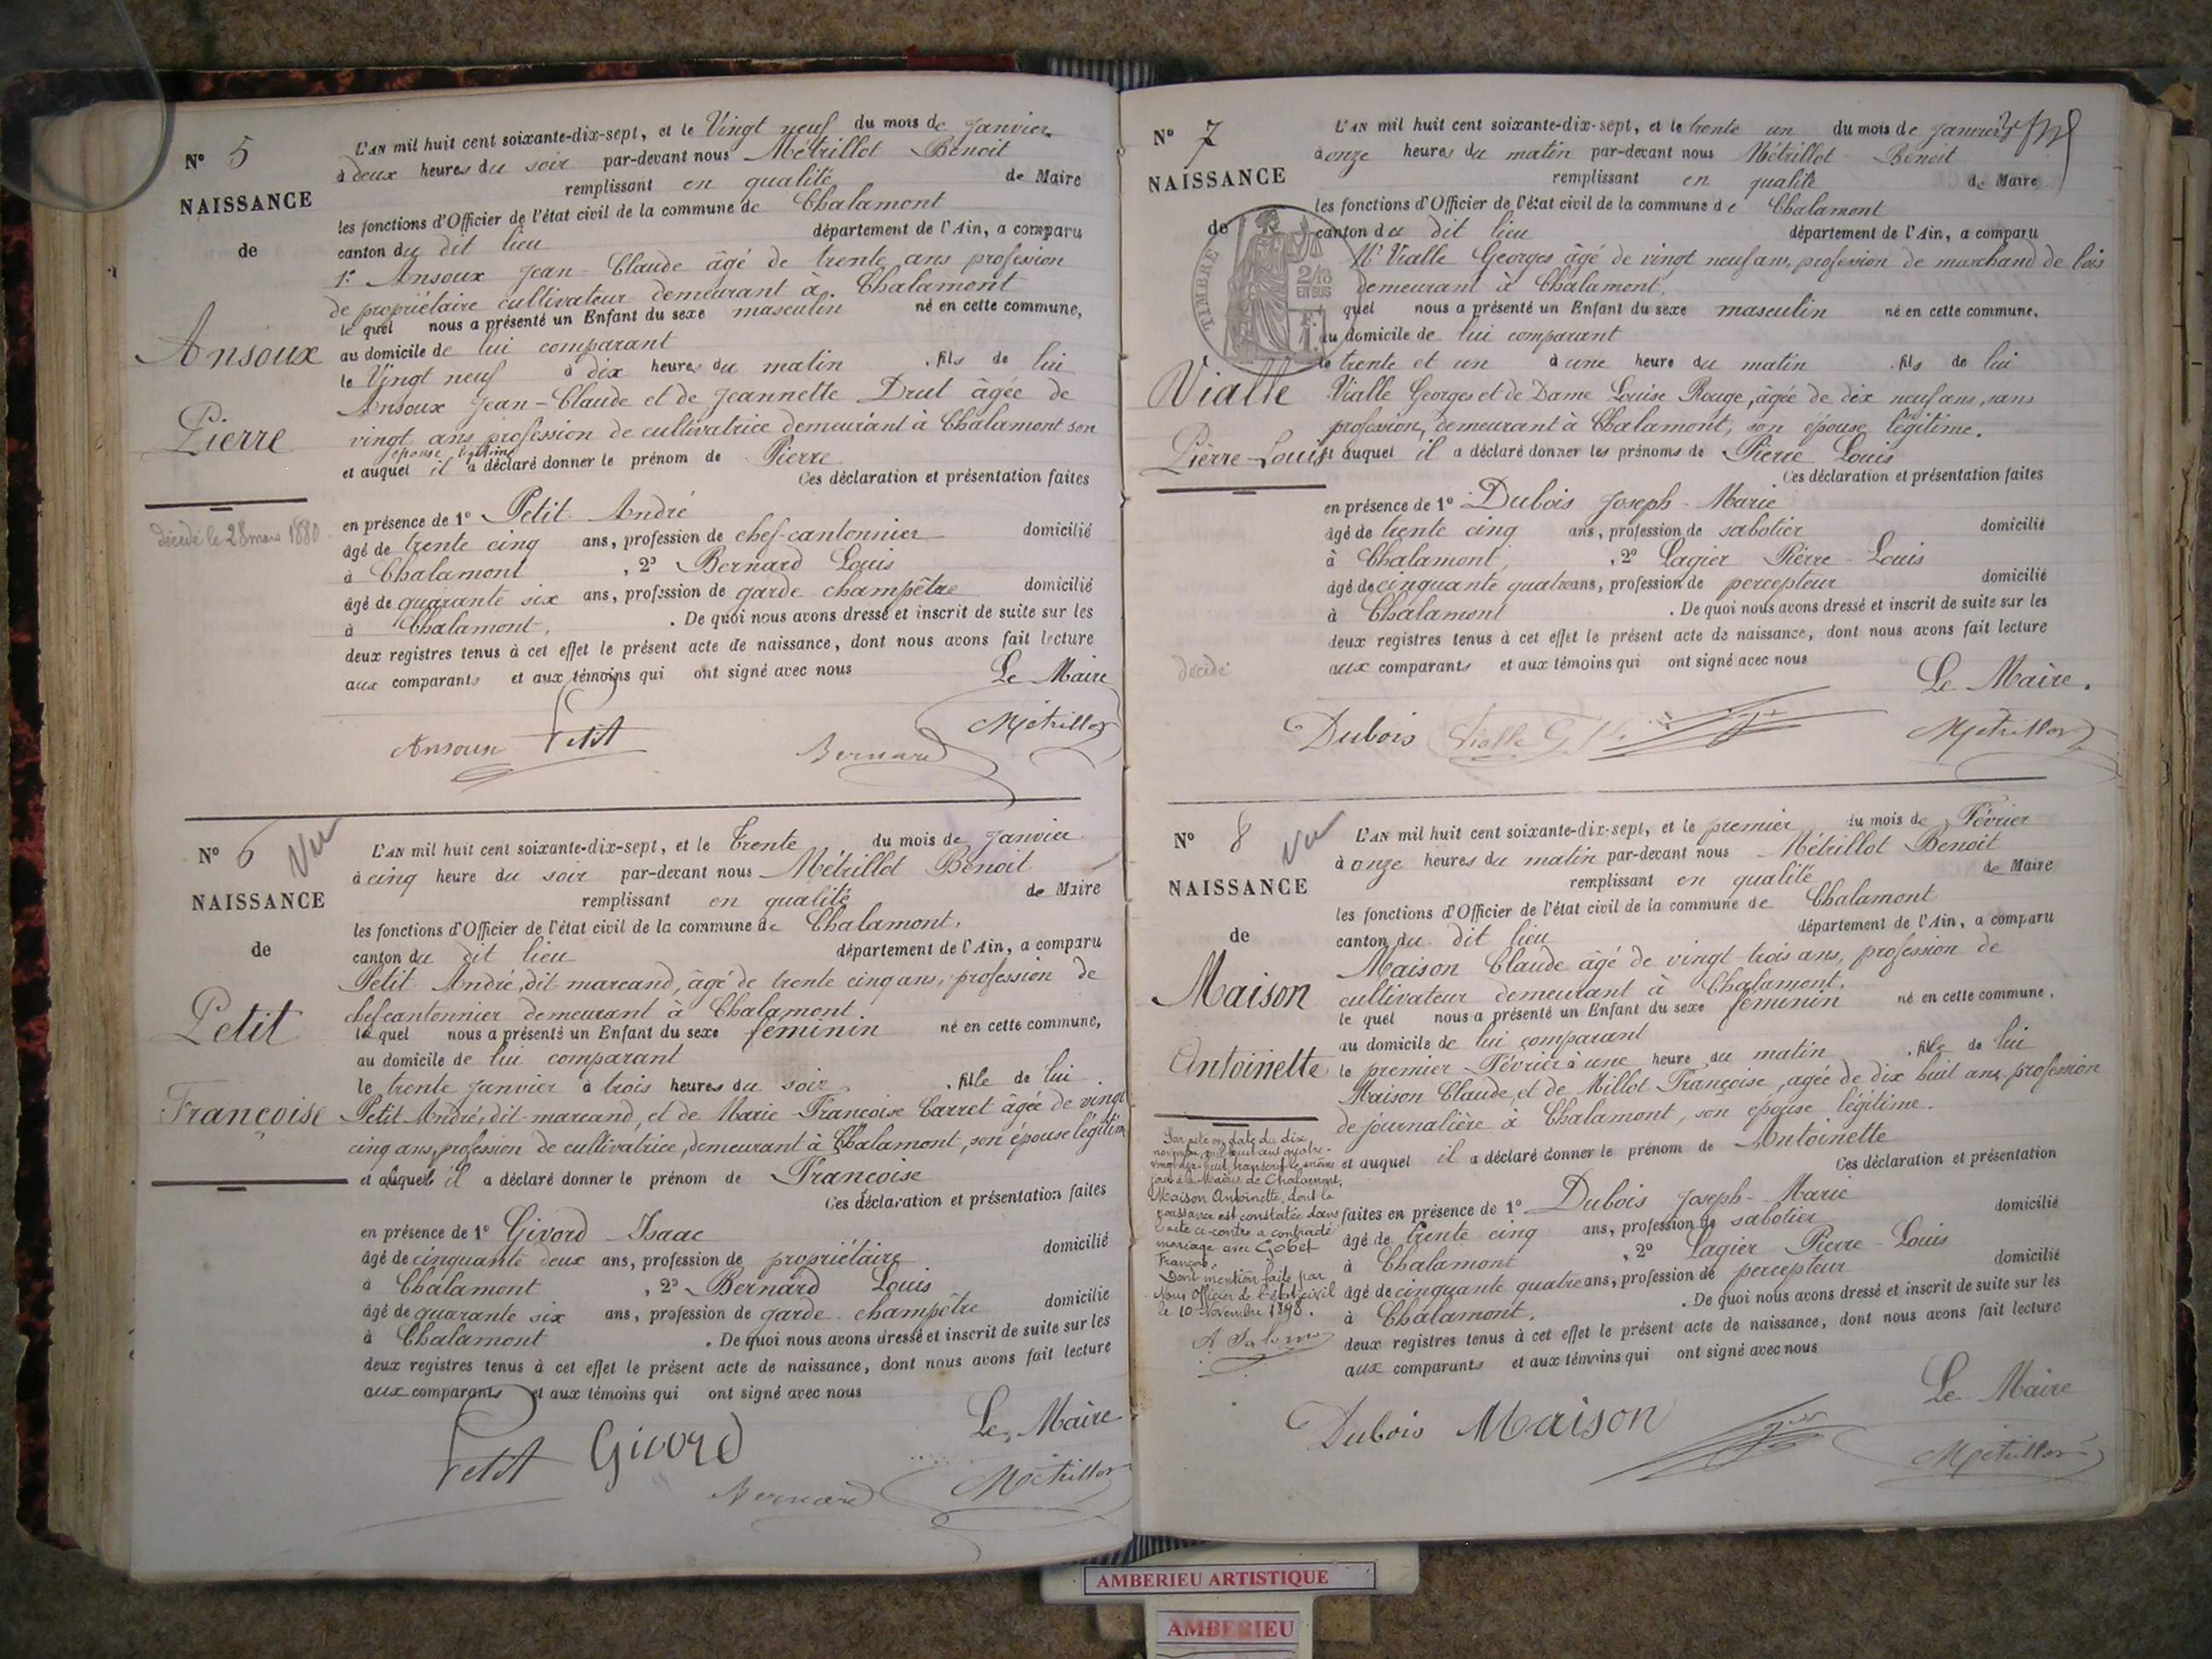 N° 5
NAISSANCE
de
Ansoux
Pierre
décédé le 28 mars 1880
L'AN mil huit cent soixante-dix-sept, et le Vingt neuf du mois de Janvier
à deux heures du soir par-devant nous Métrillot Benoit
remplissant en qualité de Maire
les fonctions d'Officier de l'état civil de la commune de Chalamont
canton du dit lieu département de l'Ain, a comparu
1° Ansoux Jean-Claude âgé de trente ans profession
de propriétaire cultivateur demeurant à Chalamont
le quel nous a présenté un Enfant du sexe masculin né en cette commune,
au domicile de lui comparant
le Vingt neuf à dix heures du matin , fils de lui
Ansoux Jean-Claude et de Jeannette Drut âgée de
vingt ans profession de cultivatrice demeurant à Chalamont son
épouse légitime
et auquel il a déclaré donner le prénom de Pierre
Ces déclaration et présentation faites
en présence de 1° Petit André
âgé de trente cinq ans, profession de chef-cantonnier domicilié
à Chalamont , 2° Bernard Louis
âgé de quarante six ans, profession de garde champêtre domicilié
à Chalamont. . De quoi nous avons dressé et inscrit de suite sur les
deux registres tenus à cet effet le présent acte de naissance, dont nous avons fait lecture
aux comparants et aux témoins qui ont signé avec nous
Le Maire
Ansoux Petit Bernard Métrillot
N° 6 Vu
NAISSANCE
de
Petit
Françoise
L'AN mil huit cent soixante-dix-sept, et le Trente du mois de Janvier
à cinq heure du soir par-devant nous Métrillot Benoit
remplissant en qualité de Maire
les fonctions d'Officier de l'état civil de la commune de Chalamont.
canton du dit lieu département de l'Ain, a comparu
Petit André, dit marcand, âgé de trente cinq ans, profession de
chef cantonnier demeurant à Chalamont.
le quel nous a présenté un Enfant du sexe féminin né en cette commune,
au domicile de lui comparant
le trente Janvier à trois heures du soir , fille de lui
Petit André, dit marcand, et de Marie Françoise Carret âgée de vingt
cinq ans, profession de cultivatrice, demeurant à Chalamont, son épouse légitime
et auquel il a déclaré donner le prénom de Françoise
Ces déclaration et présentation faites
en présence de 1° Givord Isaac
âgé de cinquante deux ans, profession de propriétaire domicilié
à Chalamont , 2° Bernard Louis
âgé de quarante six ans, profession de garde champêtre domicilié
à Chalamont . De quoi nous avons dressé et inscrit de suite sur les
deux registres tenus à cet effet le présent acte de naissance, dont nous avons fait lecture
aux comparants et aux témoins qui ont signé avec nous
Le Maire
Petit Givord Bernard Métrillot
N° 7
NAISSANCE
de
TIMBRE
2/10
EN SUS
Vialle
Pierre-Louis
décédé
L'AN mil huit cent soixante-dix-sept, et le trente un du mois de Janvier
à onze heures du matin par-devant nous Métrillot Benoit
remplissant en qualité de Maire
les fonctions d'Officier de l'état civil de la commune de Chalamont
canton du dit lieu département de l'Ain, a comparu
Mr Vialle Georges âgé de vingt neuf ans, profession de marchand de bois
demeurant à Chalamont.
quel nous a présenté un Enfant du sexe masculin né en cette commune,
au domicile de lui comparant
le trente et un à une heure du matin , fils de lui
Vialle Georges et de Dame Louise Rouge, âgée de dix neuf ans, sans
profession, demeurant à Chalamont, son épouse légitime.
et auquel il a déclaré donner les prénoms de Pierre Louis
Ces déclaration et présentation faites
en présence de 1° Dubois Joseph-Marie
âgé de trente cinq ans, profession de sabotier domicilié
à Chalamont , 2° Lagier Pierre-Louis
âgé de cinquante quatre ans, profession de percepteur domicilié
à Chalamont . De quoi nous avons dressé et inscrit de suite sur les
deux registres tenus à cet effet le présent acte de naissance, dont nous avons fait lecture
aux comparants et aux témoins qui ont signé avec nous
Le Maire.
Dubois Vialle G. Métrillot
N° 8 Vu
NAISSANCE
de
Maison
Antoinette
Par acte en date du dix
novembre, mil huit cent quatre-
vingt dix-huit, transcrit le même
jour à la Mairie de Chalamont,
Maison Antoinette, dont la
naissance est constatée dans
l'acte ci-contre a contracté
mariage avec Gobet
François.
Dont mention faite par
Nous Officier de l'état civil
le 10 Novembre 1898.
L'AN mil huit cent soixante-dix-sept, et le premier du mois de Février
à onze heures du matin par-devant nous Métrillot Benoit
remplissant en qualité de Maire
les fonctions d'Officier de l'état civil de la commune de Chalamont
canton du dit lieu département de l'Ain, a comparu
Maison Claude âgé de vingt-trois ans, profession de
cultivateur demeurant à Chalamont.
le quel nous a présenté un Enfant du sexe féminin né en cette commune.
au domicile de lui comparant
le premier Février à une heure du matin , fille de lui
Maison Claude, et de Millot Françoise, âgée de dix huit ans, profession
de journalière à Chalamont, son épouse légitime.
et auquel il a déclaré donner le prénom de Antoinette
Ces déclaration et présentation
faites en présence de 1° Dubois Joseph-Marie
âgé de trente cinq ans, profession de sabotier domicilié
à Chalamont , 2° Lagier Pierre-Louis
âgé de cinquante quatre ans, profession de percepteur domicilié
à Chalamont. . De quoi nous avons dressé et inscrit de suite sur les
deux registres tenus à cet effet le présent acte de naissance, dont nous avons fait lecture
aux comparants et aux témoins qui ont signé avec nous
Le Maire
Dubois Maison Métrillot
AMBERIEU ARTISTIQUE
AMBERIEU